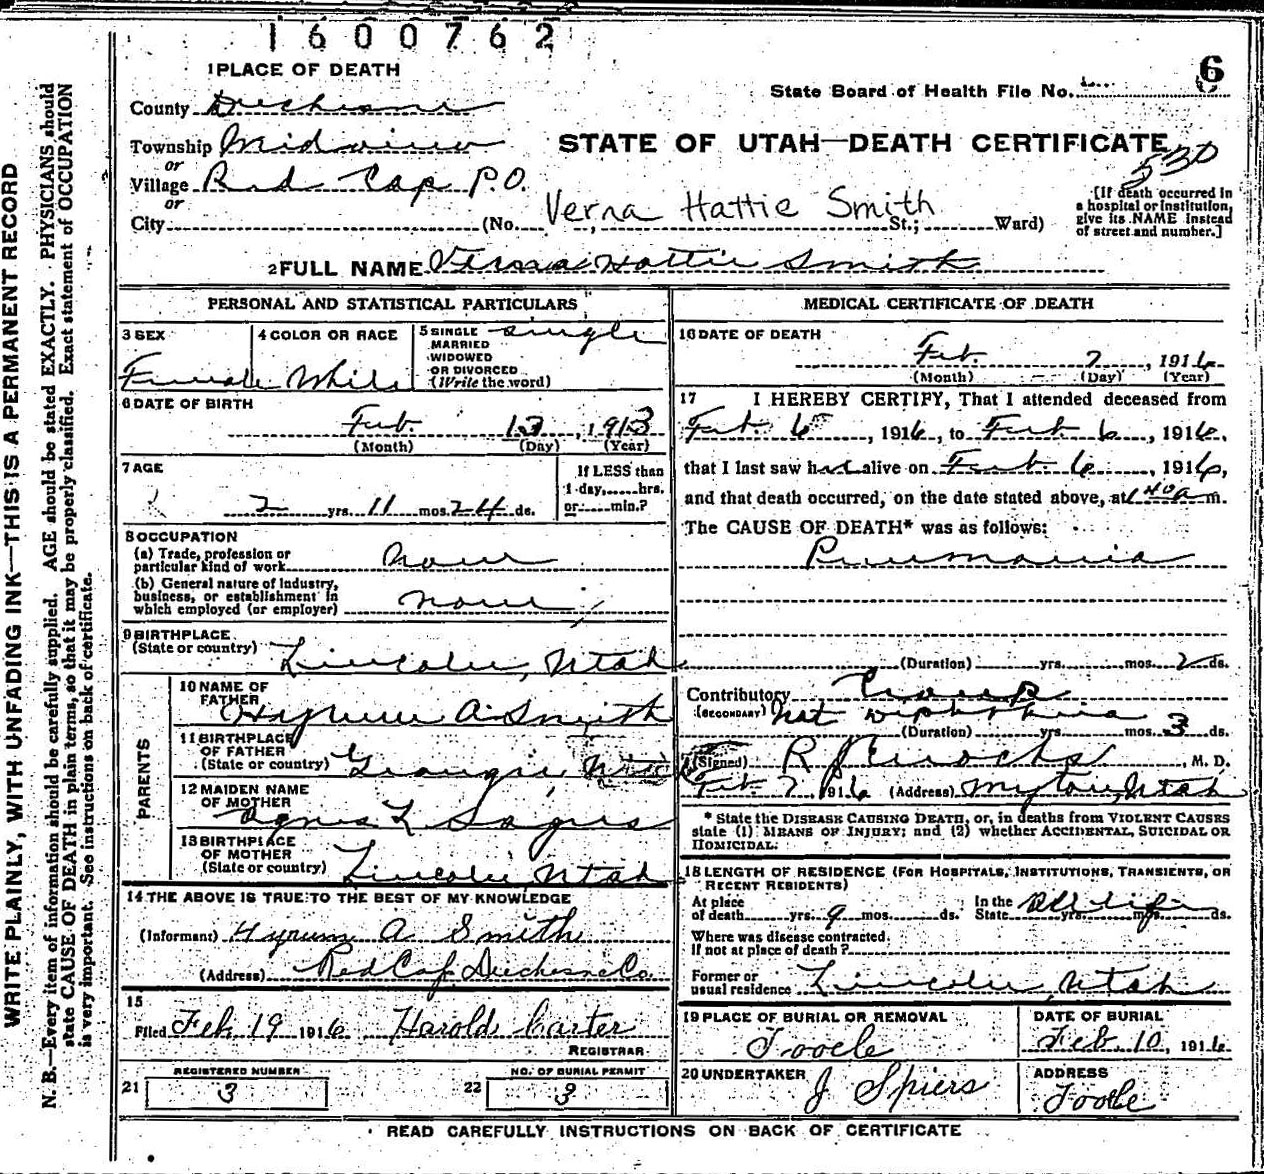 1600762
6
1 PLACE OF DEATH
State Board of Health File No.
County Duchesne
STATE OF UTAH—DEATH CERTIFICATE
Township Midview
530
or
Village Red Cap P.O.
or
[If death occurred in
a hospital or institution,
give its NAME instead
of street and number.]
Verna Hattie Smith
City (No. St.; Ward)
2 FULL NAME Verna Hattie Smith
PERSONAL AND STATISTICAL PARTICULARS
3 SEX
Female
4 COLOR OR RACE
White
5 SINGLE
MARRIED
WIDOWED
OR DIVORCED
(Write the word)
single
6 DATE OF BIRTH
Feb. 13, 1913
(Month) (Day) (Year)
7 AGE
2 yrs. 11 mos. 24 ds.
If LESS than
1 day, hrs.
or min.?
8 OCCUPATION
(a) Trade, profession or
particular kind of work none
(b) General nature of industry,
business, or establishment in
which employed (or employer) none
9 BIRTHPLACE
(State or country) Lincoln, Utah
PARENTS
10 NAME OF
FATHER Hyrum A. Smith
11 BIRTHPLACE
OF FATHER
(State or country)
12 MAIDEN NAME
OF MOTHER Agnes L
13 BIRTHPLACE
OF MOTHER
(State or country) Lincoln, Utah
14 THE ABOVE IS TRUE TO THE BEST OF MY KNOWLEDGE
(Informant) Hyrum A Smith
(Address) Red Cap Duchesne Co.
15
Filed Feb 19 1916 Harold Carter
REGISTRAR
REGISTERED NUMBER
21 3
NO. OF BURIAL PERMIT
22 3
MEDICAL CERTIFICATE OF DEATH
16 DATE OF DEATH
Feb. 7, 1916
(Month) (Day) (Year)
17 I HEREBY CERTIFY, That I attended deceased from
Feb. 6, 1916, to Feb. 6, 1916,
that I last saw her alive on Feb. 6, 1916,
and that death occurred, on the date stated above, at 1 40 a m.
The CAUSE OF DEATH* was as follows:
Pneumonia
(Duration) yrs. mos. 2 ds.
Contributory Croup
(SECONDARY) Not Diphtheria
(Duration) yrs. mos. 3 ds.
(Signed) R , M. D.
Feb. 7 1916 (Address) Myton, Utah
* State the DISEASE CAUSING DEATH, or, in deaths from VIOLENT CAUSES
state (1) MEANS OF INJURY; and (2) whether ACCIDENTAL, SUICIDAL OR
HOMICIDAL.
18 LENGTH OF RESIDENCE (FOR HOSPITALS, INSTITUTIONS, TRANSIENTS, OR
RECENT RESIDENTS)
At place
of death yrs. 9 mos. ds.
In the
State All life yrs. mos. ds.
Where was disease contracted.
If not at place of death?
Former or
usual residence Lincoln, Utah
19 PLACE OF BURIAL OR REMOVAL
Tooele
DATE OF BURIAL
Feb. 10, 1916
20 UNDERTAKER
J Spiers
ADDRESS
Tooele
READ CAREFULLY INSTRUCTIONS ON BACK OF CERTIFICATE
WRITE PLAINLY, WITH UNFADING INK—THIS IS A PERMANENT RECORD
N. B.—Every item of information should be carefully supplied. AGE should be stated EXACTLY. PHYSICIANS should
state CAUSE OF DEATH in plain terms, so that it may be properly classified. Exact statement of OCCUPATION
is very important. See instructions on back of certificate.